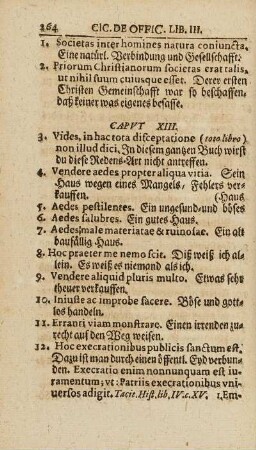 264 CIC. DE OFFIC. LIB. III.
1. Societas inter homines natura coniuncta.
Eine natürl. Verbindung und Gesellschafft.
2. Priorum Christianorum societas erat talis,
ut nihil suum cuiusque esset. Derer ersten
Christen Gemeinschafft war so beschaffen,
daß keiner was eigenes besasse.
CAPVT XIII.
3. Vides, in hac tota disceptatione (toto libro)
non illud dici. In diesem gantzen Buch wirst
du diese Redens-Art nicht antreffen.
4. Vendere aedes propter aliqua vitia. Sein
Haus wegen eines Mangels, Fehlers ver-
kauffen. (Haus.
5. Aedes pestilentes. Ein ungesund- und böses
6. Aedes salubres. Ein gutes Haus.
7. Aedes male materiatae & ruinosae. Ein alt
baufällig Haus.
8. Hoc praeter me nemo scit. Diß weiß ich al-
lein. Es weiß es niemand als ich.
9. Vendere aliquid pluris multo. Etwas sehr
theuer verkauffen.
10. Iniuste ac improbe sacere. Böse und gott-
los handeln.
11. Erranti viam monstrare. Einen irrenden zu-
recht auf den Weg weisen.
12. Hoc execrationibus publicis sanctum est.
Dazu ist man durch einen öffentl. Eyd verbun-
den. Execratio enim nonnunquam est iu-
ramentum; vt: Patriis execrationibus vni-
versos adigit. Tacit. Hist. lib. IV. c. XV. 1. Em-